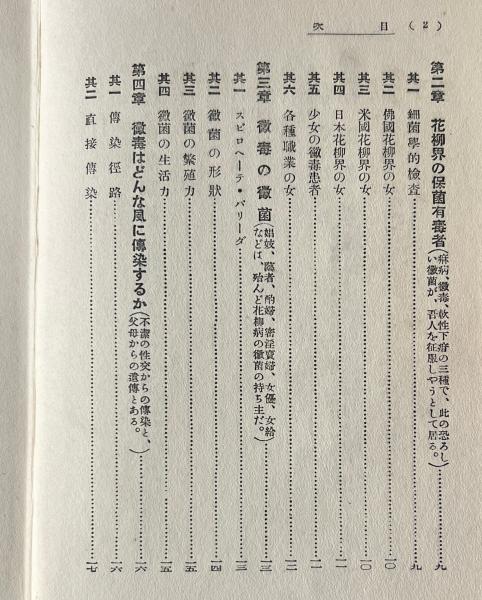 目次 (2)
第二章 花柳界の保菌有毒者(痳病、黴毒、軟性下疳の三種で、此の恐ろしい黴菌が、吾人を征服しやうとして居る。)……九
其一 細菌學的檢査……九
其二 佛國花柳界の女……一〇
其三 米國花柳界の女……一〇
其四 日本花柳界の女……一一
其五 少女の黴毒患者……一一
其六 各種職業の女……一二
第三章 黴毒の黴菌(娼妓、藝者、酌婦、密淫賣婦、女優、女給などは、殆んど花柳病の黴菌の持ち主だ。)……一三
其一 スピロヘーテ・パリーダ……一三
其二 黴菌の形狀……一四
其三 黴菌の繁殖力……一五
其四 黴菌の生活力……一五
第四章 黴毒はどんな風に傳染するか(不潔の性交からの傳染と、父母からの遺傳とある。)……一六
其一 傳染徑路……一六
其二 直接傳染……一七